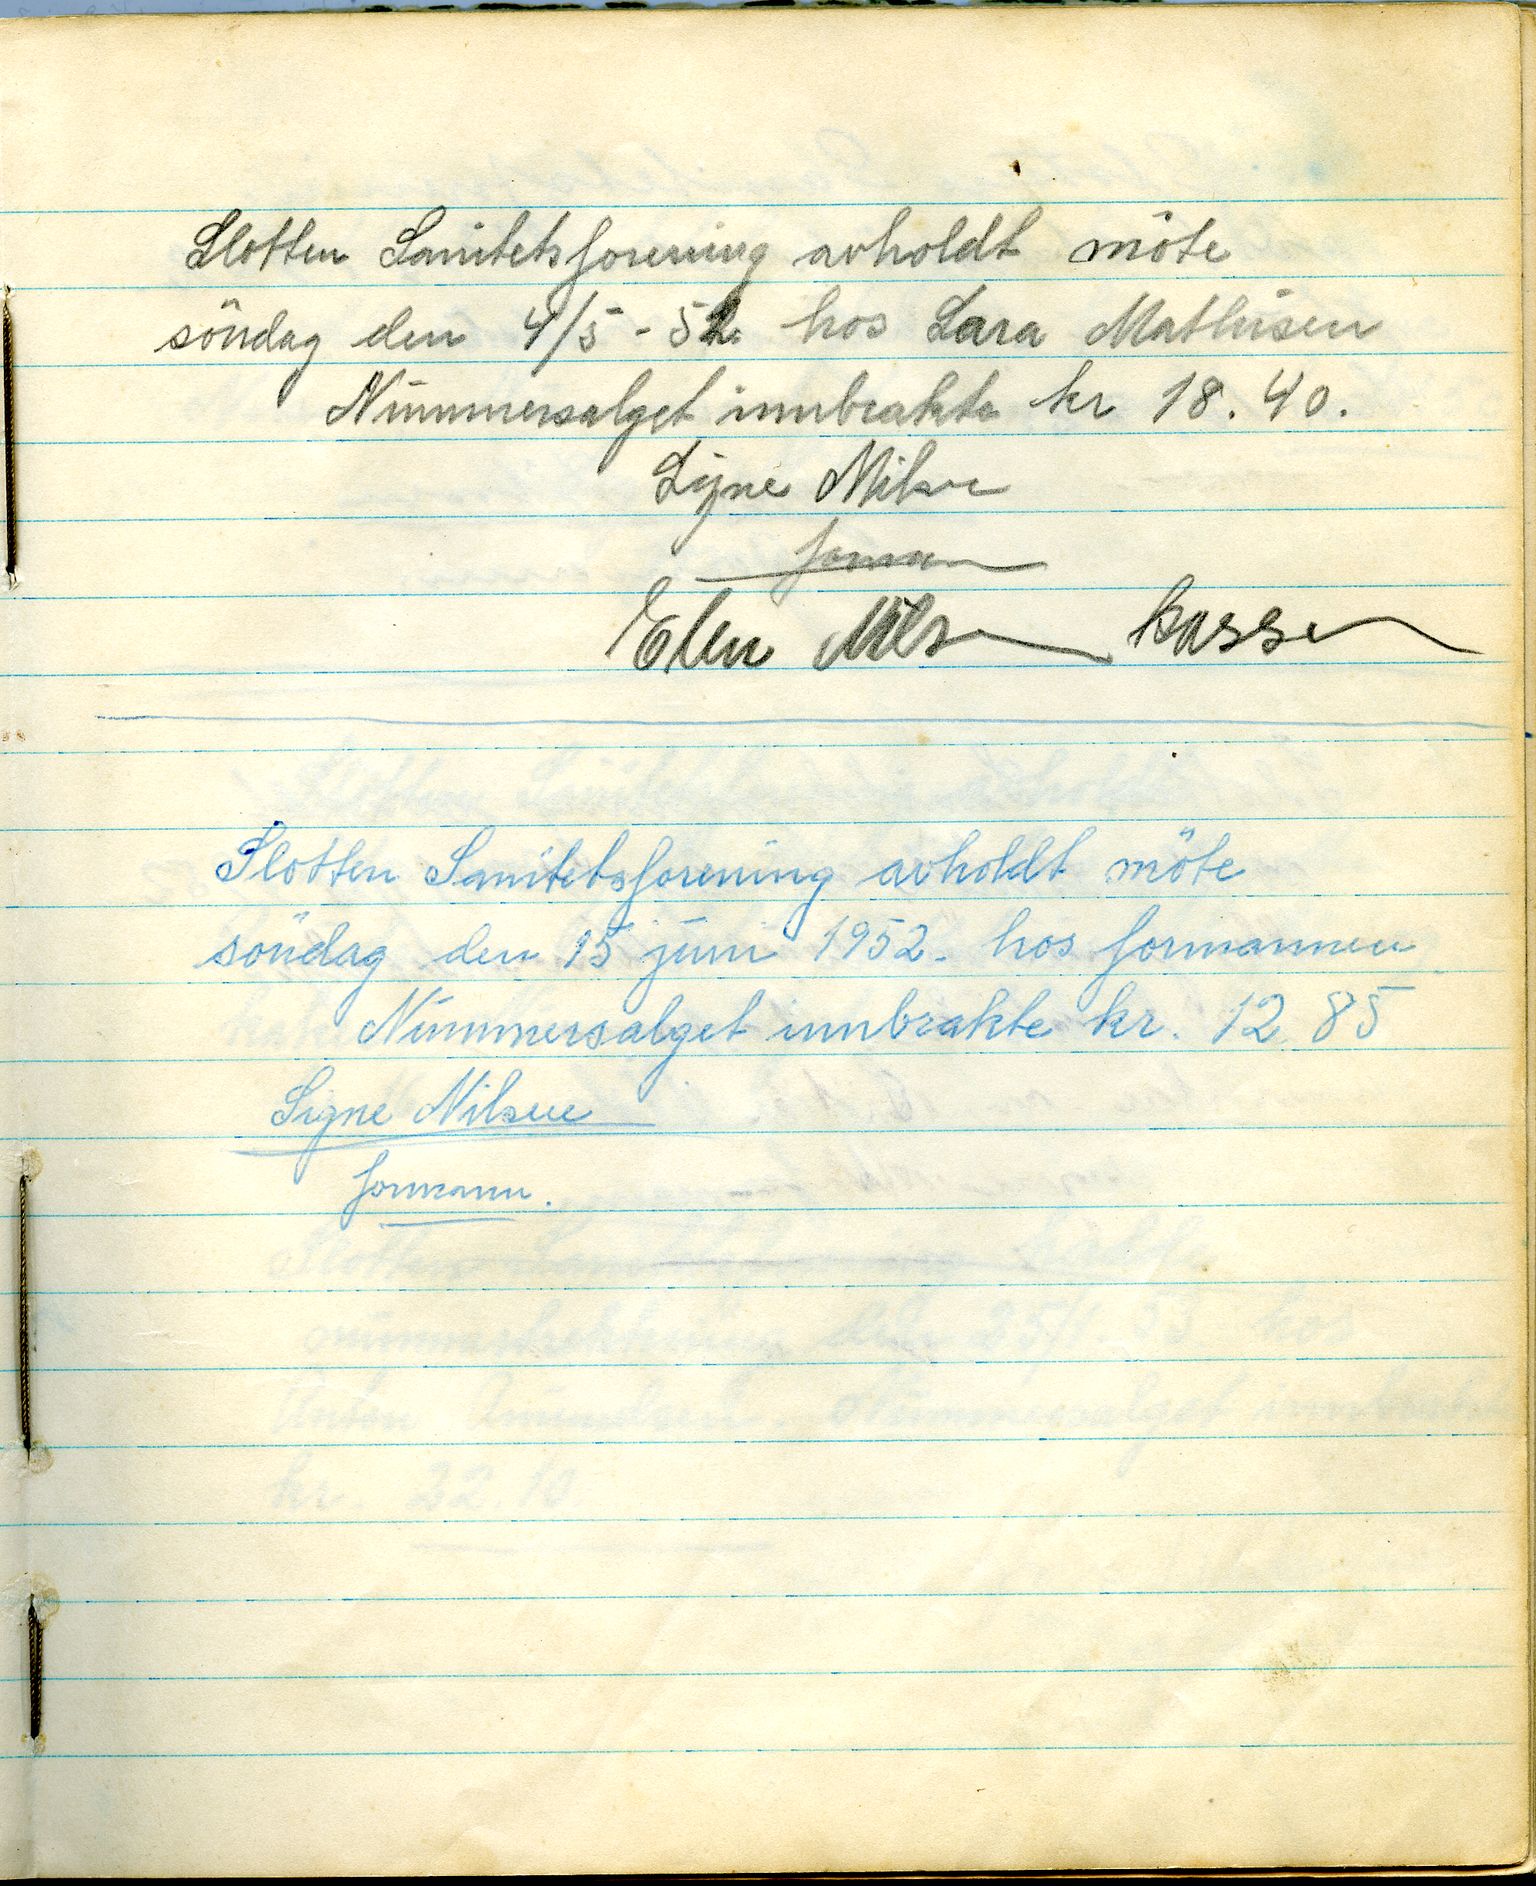 Slotten Sanitetsforening avholdt möte
söndag den 4/5 - 52 hos Lara Mathisen
Nummersalget innbrakte kr 18.40.
Signe Nilsen
forman
Elen Nilsen kasser
Slotten Sanitetsforening avholdt möte
söndag den 15 juni 1952. hos formannen
Nummersalget innbrakte kr. 12 85
Signe Nilsen
formann.